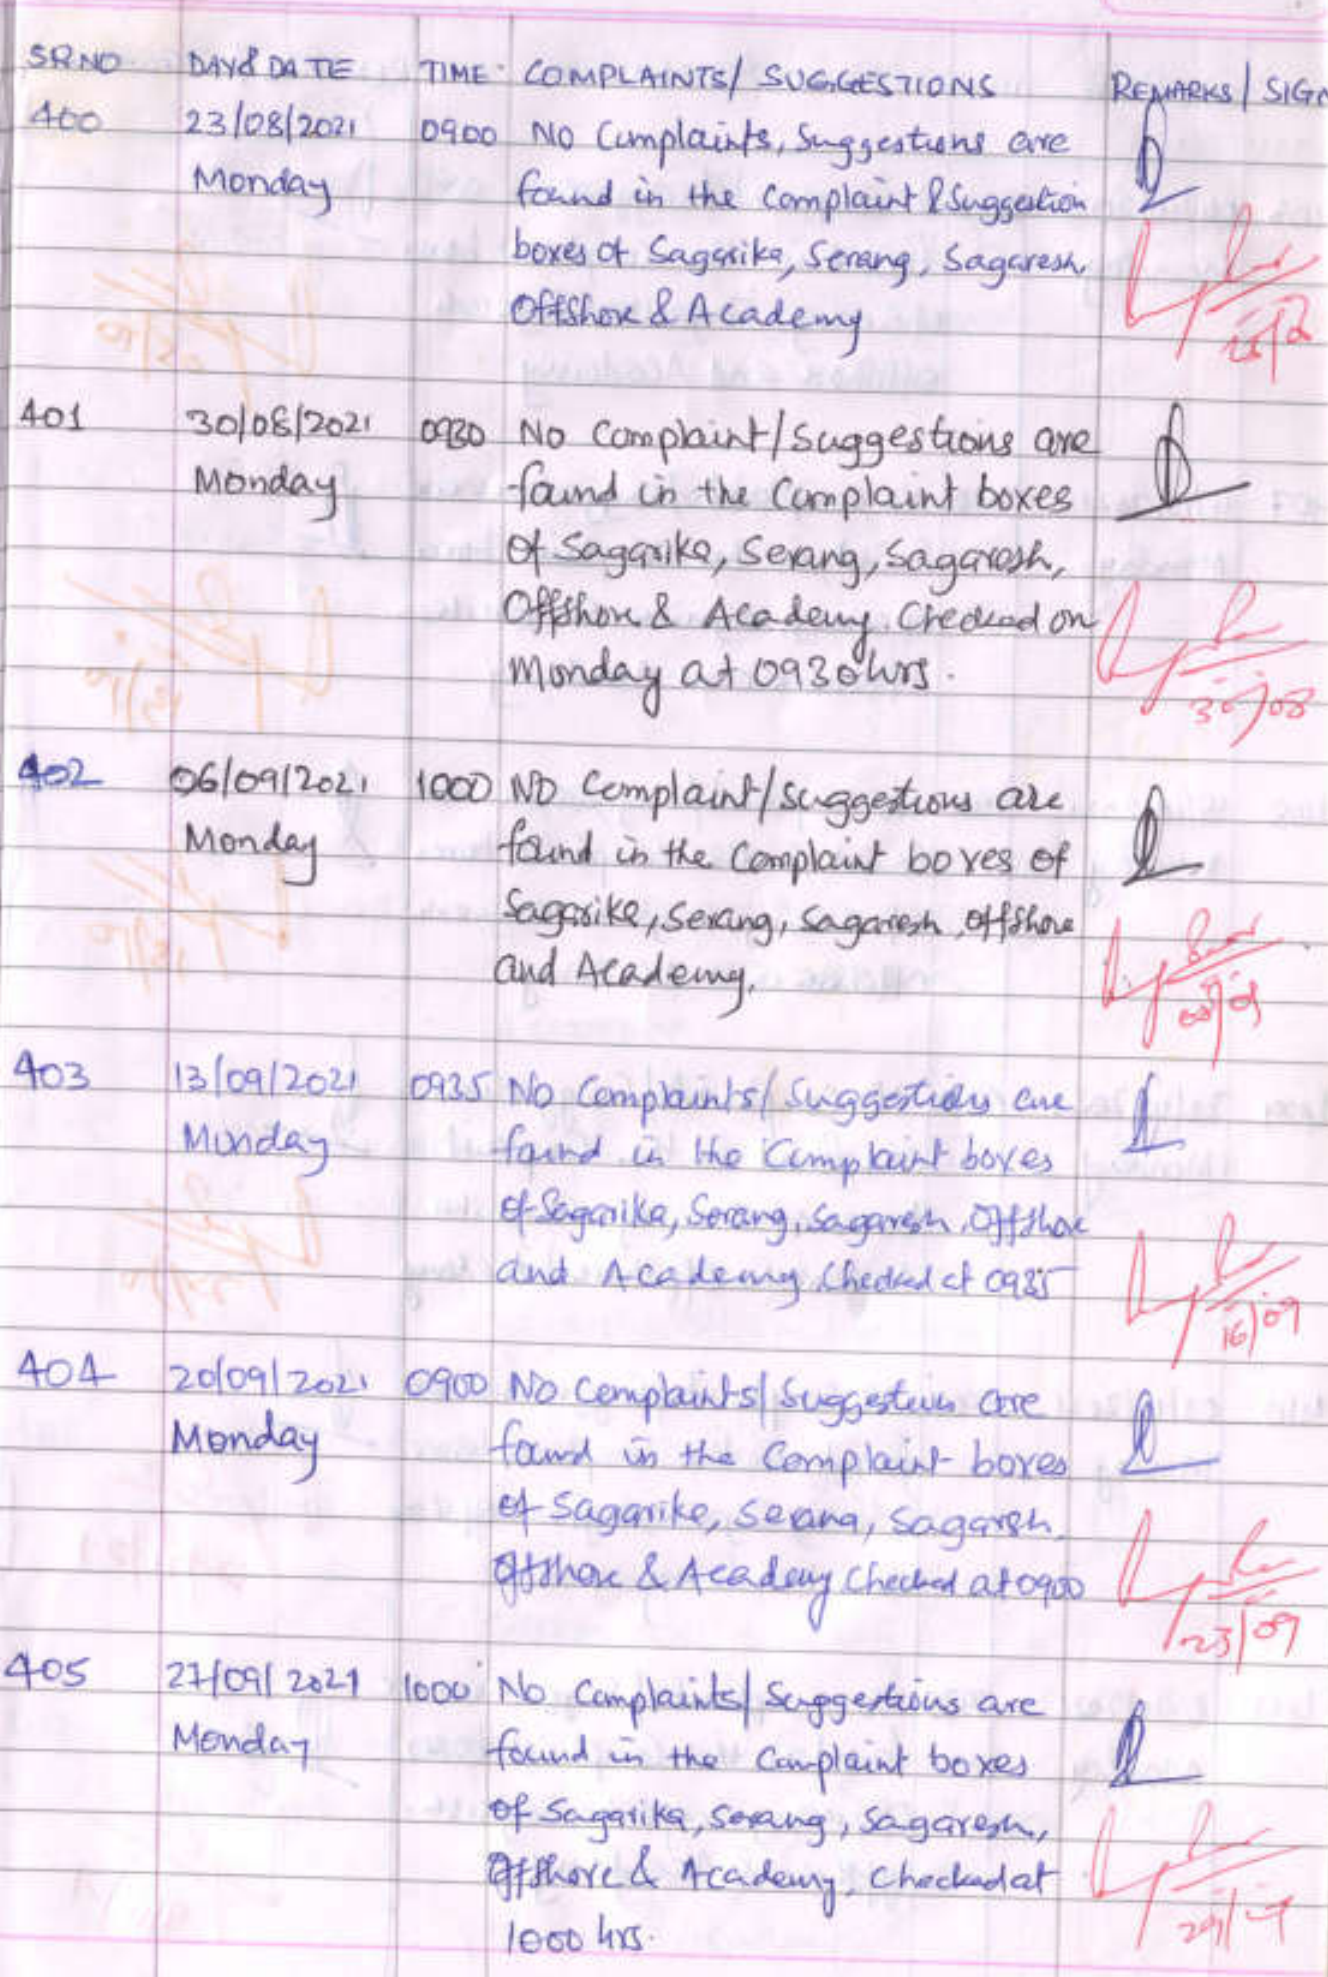 SR NO DAY & DATE TIME COMPLAINTS/ SUGGESTIONS REMARKS / SIGN
400 23/08/2021 0900 No Complaints, Suggestions are
Monday found in the Complaint & Suggestion
boxes of Sagarika, Serang, Sagaresh,
Offshore & Academy
401 30/08/2021 0930 No Complaint/Suggestions are
Monday found in the Complaint boxes
of Sagarika, Serang, Sagaresh,
Offshore & Academy. Checked on
Monday at 0930 hrs.
30/08
402 06/09/2021 1000 No Complaint/Suggestions are
Monday found in the Complaint boxes of
Sagarika, Serang, Sagaresh, Offshore
and Academy.
403 13/09/2021 0935 No Complaints/ Suggestions are
Monday found in the Complaint boxes
of Sagarika, Serang, Sagaresh, Offshore
and Academy. Checked at 0935
16/09
404 20/09/2021 0900 No Complaints/ Suggestions are
Monday found in the Complaint boxes
of Sagarika, Serang, Sagaresh,
Offshore & Academy Checked at 0900
23/09
405 27/09/2021 1000 No Complaints/ Suggestions are
Monday found in the Complaint boxes
of Sagarika, Serang, Sagaresh,
Offshore & Academy, Checked at
1000 hrs.